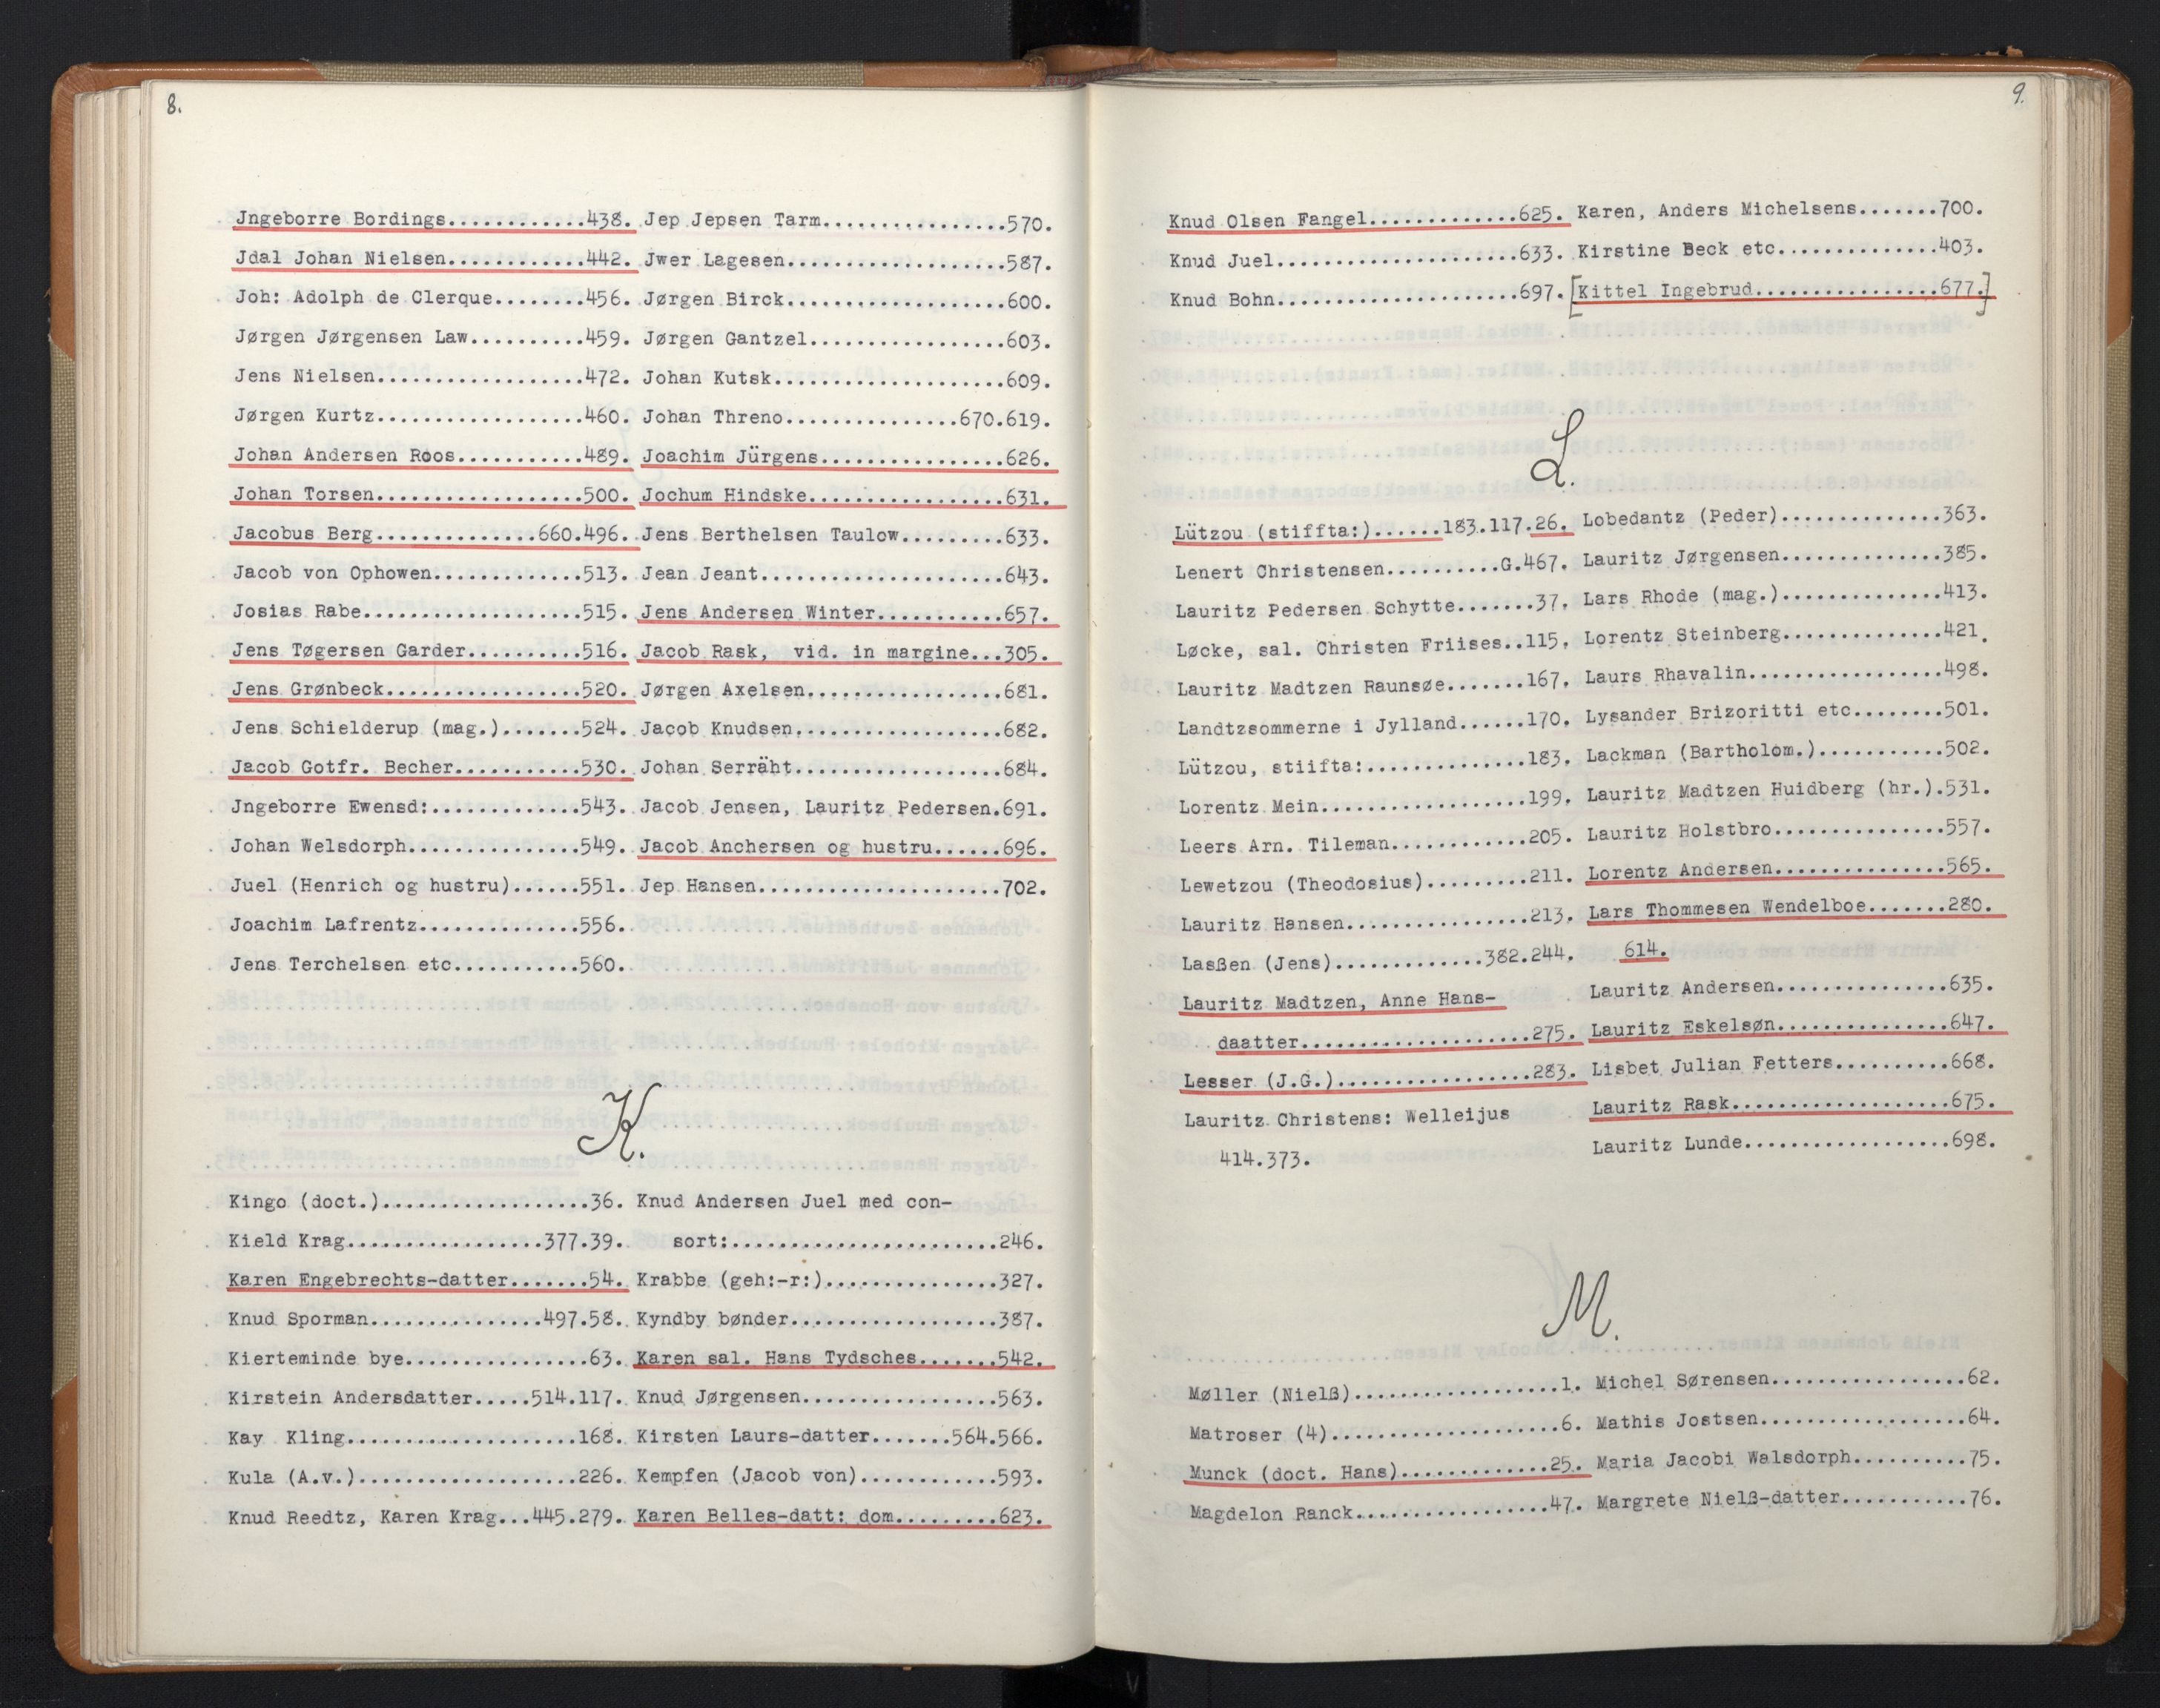 8.
Jngeborre Bordings............438.
Jdal Johan Nielsen............442.
Joh: Adolph de Clerque........456.
Jørgen Jørgensen Law..........459.
Jens Nielsen..................472.
Jørgen Kurtz..................460.
Johan Andersen Roos...........489.
Johan Torsen..................500.
Jacobus Berg..............660.496.
Jacob von Ophowen.............513.
Josias Rabe...................515.
Jens Tøgersen Garder..........516.
Jens Grønbeck.................520.
Jens Schielderup (mag.).......524.
Jacob Gotfr. Becher...........530.
Jngeborre Ewensd:.............543.
Johan Welsdorph...............549.
Juel (Henrich og hustru)......551.
Joachim Lafrentz..............556.
Jens Terchelsen etc...........560.
Jep Jepsen Tarm................570.
Jwer Lagesen...................587.
Jørgen Birck...................600.
Jørgen Gantzel.................603.
Johan Kutsk....................609.
Johan Threno...............670.619.
Joachim Jürgens................626.
Jochum Hindske.................631.
Jens Berthelsen Taulow.........633.
Jean Jeant.....................643.
Jens Andersen Winter...........657.
Jacob Rask, vid. in margine...305.
Jørgen Axelsen.................681.
Jacob Knudsen..................682.
Johan Serräht..................684.
Jacob Jensen, Lauritz Pedersen.691.
Jacob Anchersen og hustru......696.
Jep Hansen.....................702.
K.
Kingo (doct.)..................36.
Kield Krag.................377.39.
Karen Engebrechts-datter.......54.
Knud Sporman...............497.58.
Kierteminde bye................63.
Kirstein Andersdatter.....514.117.
Kay Kling....................168.
Kula (A.v.)...................226.
Knud Reedtz, Karen Krag...445.279.
Knud Andersen Juel med con-
sort:.......................246.
Krabbe (geh:-r:)...............327.
Kyndby bønder..................387.
Karen sal. Hans Tydsches.......542.
Knud Jørgensen.................563.
Kirsten Laurs-datter.......564.566.
Kempfen (Jacob von)............593.
Karen Belles-datt: dom.........623.
9.
Knud Olsen Fangel.............625.
Knud Juel.....................633.
Knud Bohn.....................697.
Karen, Anders Michelsens.......700.
Kirstine Beck etc..............403.
[Kittel Ingebrud................677.]
L.
Lützou (stiffta:)......183.117.26.
Lenert Christensen..........G.467.
Lauritz Pedersen Schytte.......37.
Løcke, sal. Christen Friises..115.
Lauritz Madtzen Raunsøe.......167.
Landtzsommerne i Jylland......170.
Lützou, stiifta:..............183.
Lorentz Mein..................199.
Leers Arn. Tileman............205.
Lewetzou (Theodosius).........211.
Lauritz Hansen................213.
Lasßen (Jens).............382.244.
Lauritz Madtzen, Anne Hans-
daatter....................275.
Lesser (J.G.).................283.
Lauritz Christens: Welleijus
414.373.
Lobedantz (Peder)..............363.
Lauritz Jørgensen..............385.
Lars Rhode (mag.)..............413.
Lorentz Steinberg..............421.
Laurs Rhavalin.................498.
Lysander Brizoritti etc........501.
Lackman (Bartholom.)...........502.
Lauritz Madtzen Huidberg (hr.).531.
Lauritz Holstbro...............557.
Lorentz Andersen...............565.
Lars Thommesen Wendelboe.......280.
614.
Lauritz Andersen...............635.
Lauritz Eskelsøn...............647.
Lisbet Julian Fetters..........668.
Lauritz Rask...................675.
Lauritz Lunde..................698.
M.
Møller (Nielß)..................1.
Matroser (4)....................6.
Munck (doct. Hans).............25.
Magdelon Ranck.................47.
Michel Sørensen.................62.
Mathis Jostsen..................64.
Maria Jacobi Walsdorph..........75.
Margrete Nielß-datter...........76.